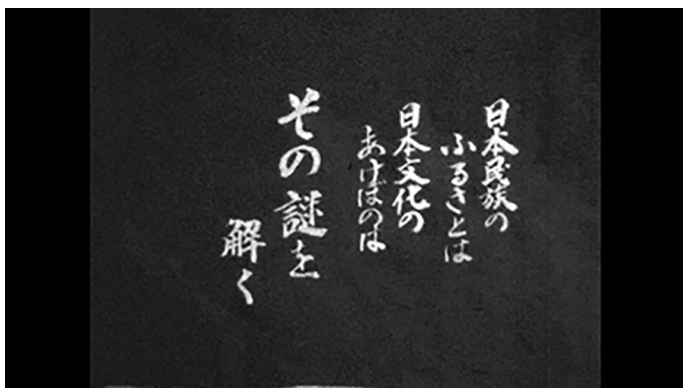 日本民族の
ふるさとは
日本文化の
あけぼのは
その謎を
解く